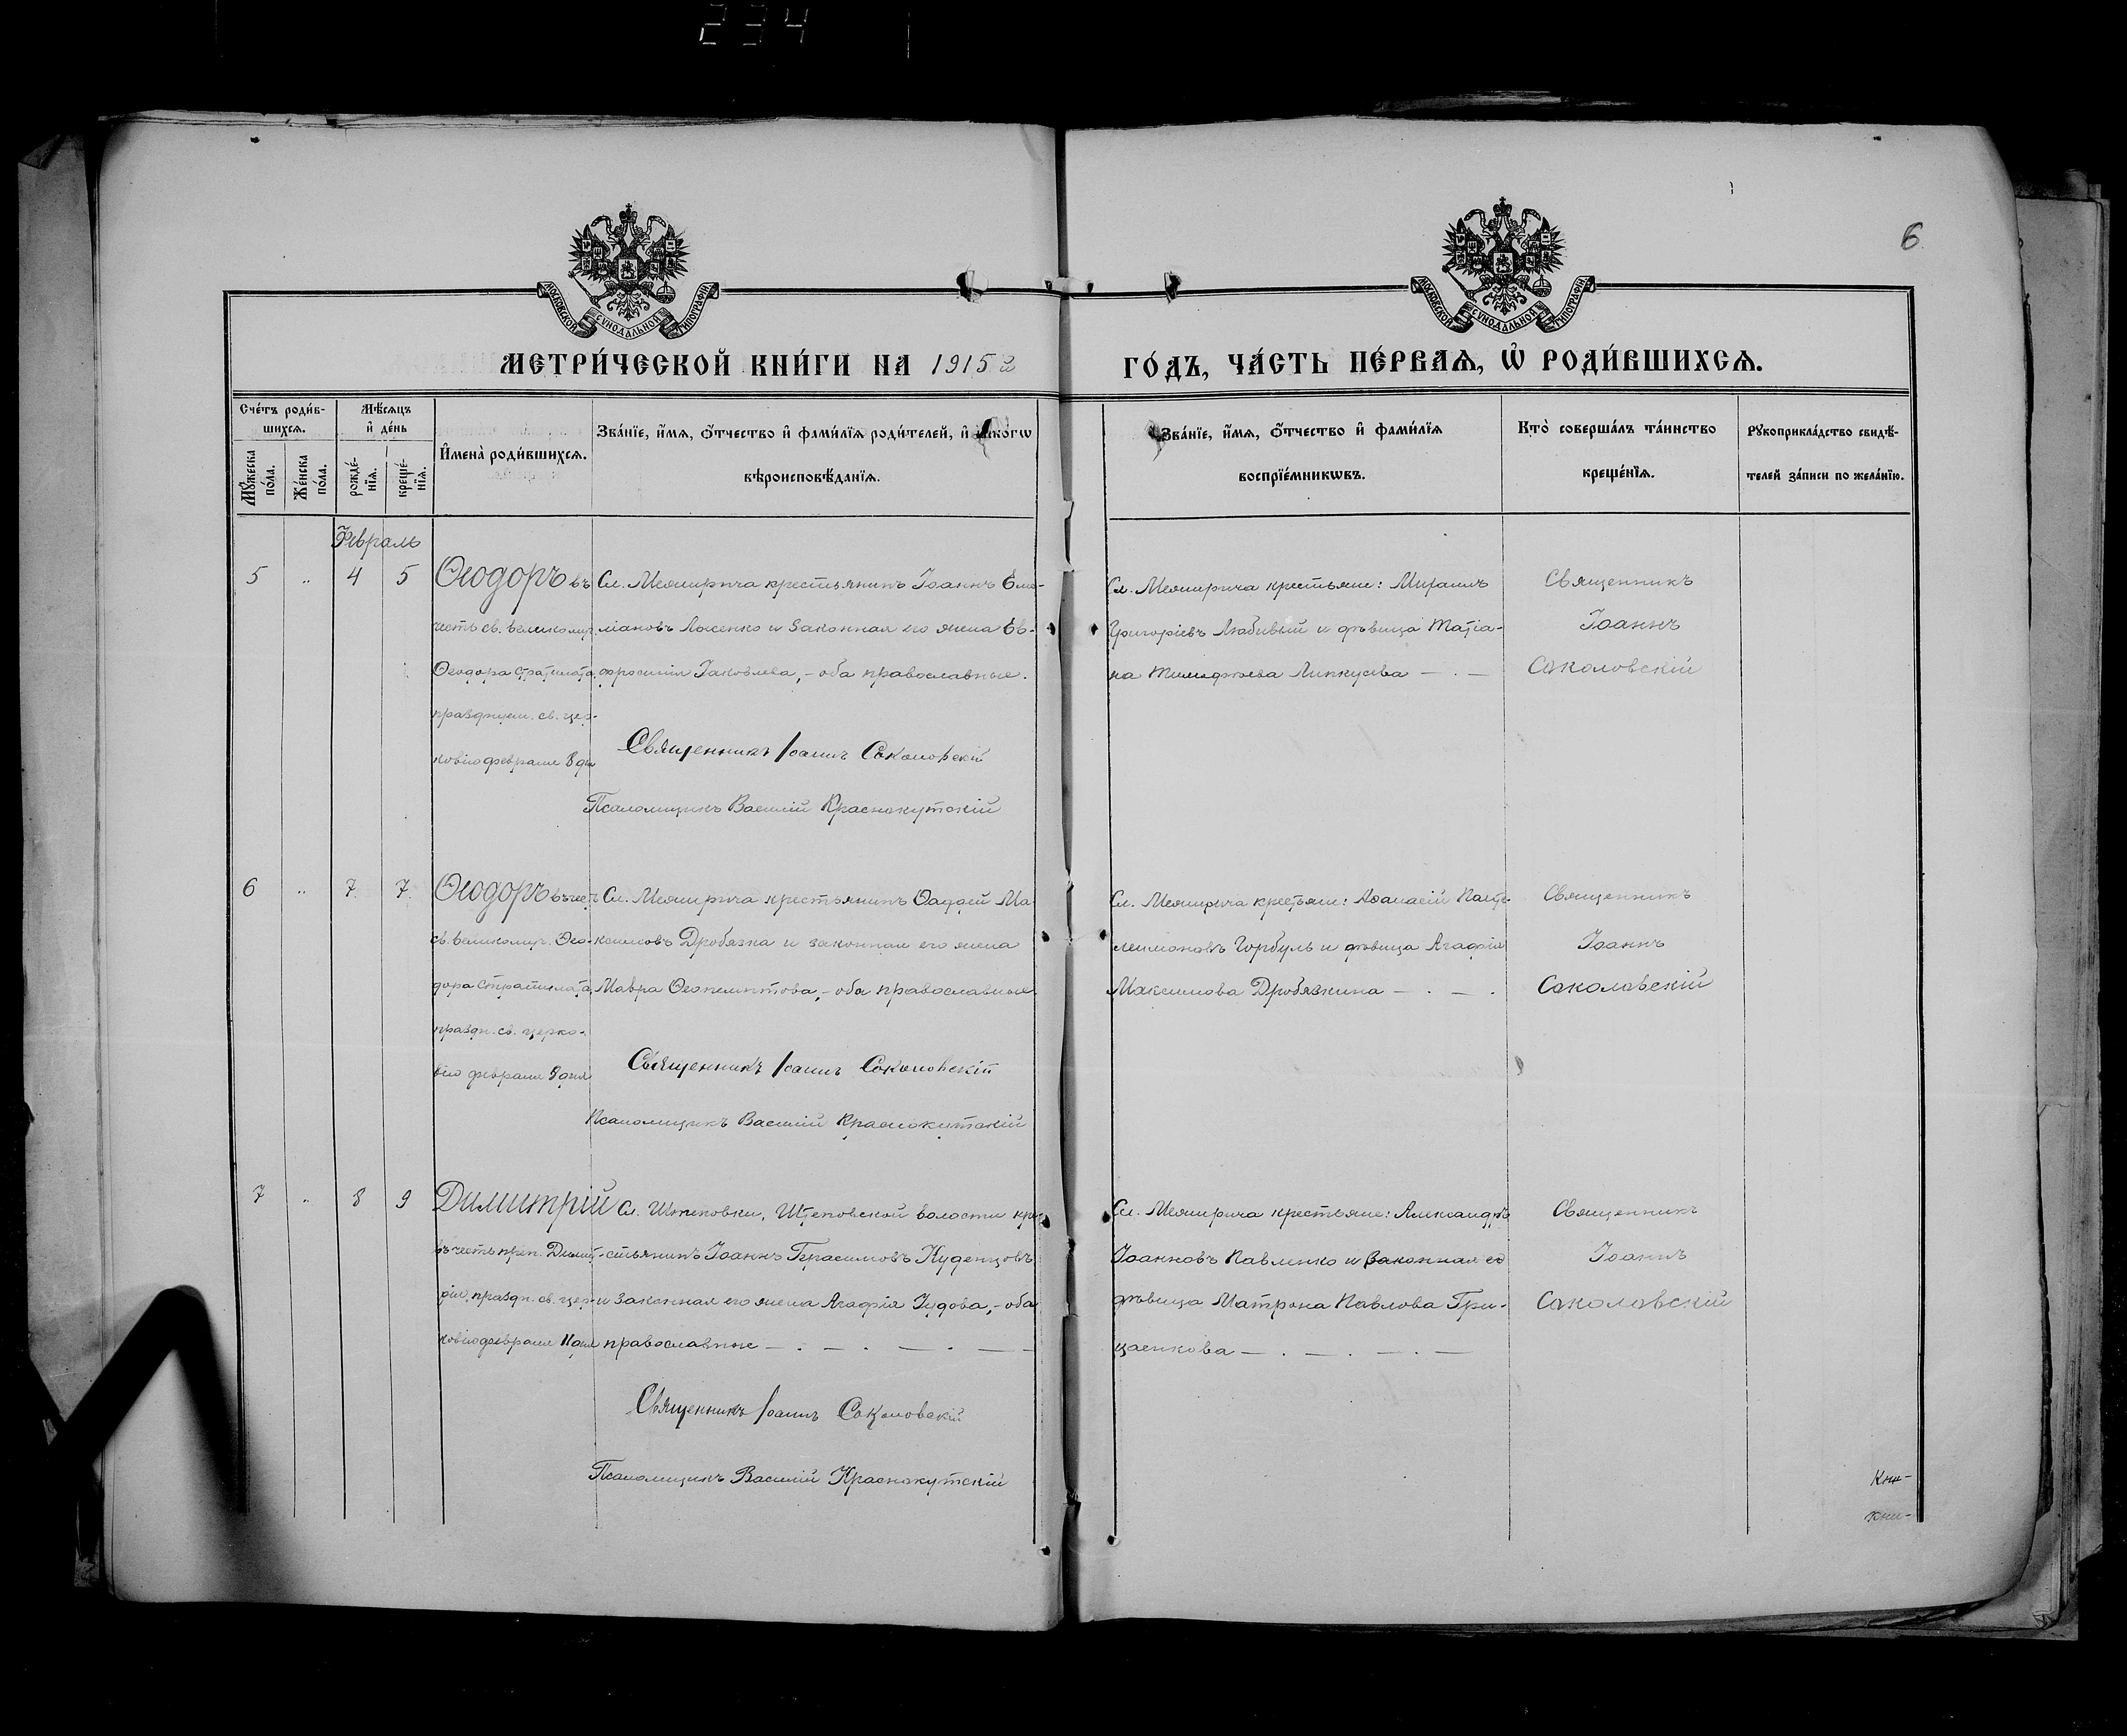 234
6
МОСКОВСКОЙ СѴНОДАЛЬНОЙ ТИПОГРАФІИ
МОСКОВСКОЙ СѴНОДАЛЬНОЙ ТИПОГРАФІИ
МЕТРИ́ЧЕСКОЙ КНИ́ГИ НА 1915 й
ГО́ДЪ, ЧА́СТЬ ПЕ́РВАѦ, Ѡ҆ РОДИ́ВШИХСѦ.
Сче́тъ роди́в-
шихсѧ.
Мѣ́сѧцъ
и҆ де́нь
Мꙋ́жеска по́ла.
Же́нска по́ла.
рожде́-
нїѧ.
креще́-
нїѧ.
И҆мена̀ роди́вшихсѧ.
Зва́нїе, и҆́мѧ, ѻ҆́тчество и҆ фами́лїѧ роди́телей, и҆ како́гѡ
вѣроисповѣ́данїѧ.
Зва́нїе, и҆́мѧ, ѻ҆́тчество и҆ фами́лїѧ
воспрїе́мникѡвъ.
Кто̀ соверша́лъ та́инство
креще́нїѧ.
Рꙋкоприкла́дство свидѣ́-
телей за́писи по жела́нїю.
Февраль
5 " 4 5
Ѳеодоръ въ
честь св. великомуч.
Ѳеодора Стратилата,
празднуем. св. цер-
ковію февраля 8 дня
Сл. Межирича крестьянинъ Іоаннъ Еме-
ліановъ Лысенко и законная его жена Ев-
фросинія Іаковлева, - оба православные.
Священникъ Іоаннъ Соколовскій
Псаломщикъ Василій Краснокутскій
Сл. Межирича крестьяне: Михаилъ
Григоріевъ Любивый и дѣвица Татіа-
на Тимофеева Липкусева — . —
Священникъ
Іоаннъ
Соколовскій
6 " 7 7
Ѳеодоръ въ чест
св. великомуч. Ѳео-
дора Стратилата,
праздн. св. церко-
вію февраля 8 дня
Сл. Межирича крестьянинъ Ѳаддей Ма-
ксимовъ Дробязка и законная его жена
Мавра Ѳеопемптова, - оба православные
Священникъ Іоаннъ Соколовскій
Псаломщикъ Василій Краснокутскій
Сл. Межирича крестьяне: Аѳанасій Панте-
леимоновъ Горбуль и дѣвица Агафія
Максимова Дробязкина — . — .
Священникъ
Іоаннъ
Соколовскій
7 " 8 9
Димитрій
въ честь преп. Димит-
рія, праздн. св. цер-
ковію февраля 11 дня
Сл. Штеповки, Штеповской волости кре-
стьянинъ Іоаннъ Герасимовъ Куденцовъ
и законная его жена Агафія Іудова, - оба
православные — . — . — . — —
Священникъ Іоаннъ Соколовскій
Псаломщикъ Василій Краснокутскій
Сл. Межирича крестьяне: Александръ
Іоанновъ Павленко и законная ее
дѣвица Матрона Павлова Гри-
цаенкова — . — . — . —
Священникъ
Іоаннъ
Соколовскій
Кни-
Кни-